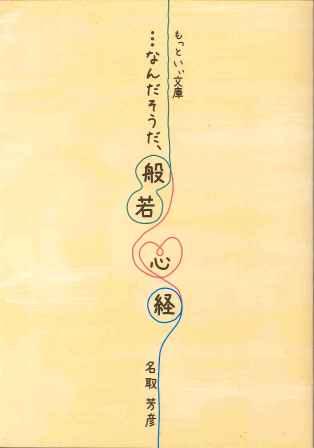 もっといい文庫
…なんだそうだ、般若心経
名取 芳彦